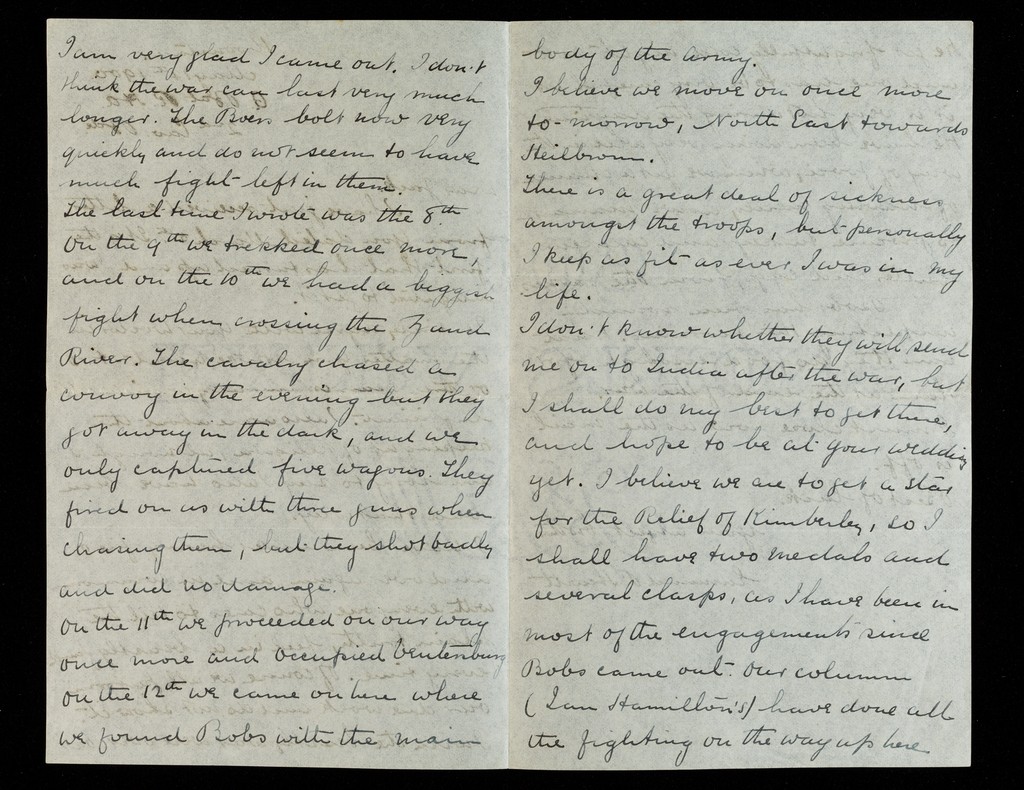 I am very glad I came out. I don't
think the war can last very much
longer. The Boers bolt now very
quickly and do not seem to have
much fight left in them.
The last time I wrote was the 8th.
On the 9th we trekked once more,
and on the 10th we had a biggish
fight when crossing the Zand
River. The cavalry chased a
convoy in the evening but they
got away in the dark, and we
only captured five wagons. They
fired on us with three guns when
chasing them, but they shot badly
and did no damage.
On the 11th we proceeded on our way
once more and occupied Ventersburg
on the 12th we came on here where
we found Bobs with the main
body of the army.
I believe we move on once more
to-morrow, North East towards
Heilbron.
There is a great deal of sickness
amongst the troops, but personally
I keep as fit as ever I was in my
life.
I don't know whether they will send
me on to India after the war, but
I shall do my best to get there,
and hope to be at your wedding
yet. I believe we are to get a star
for the Relief of Kimberley, so I
shall have two medals and
several clasps, as I have been in
most of the engagements since
Bobs came out. Our column
(Ian Hamilton's) have done all
the fighting on the way up here